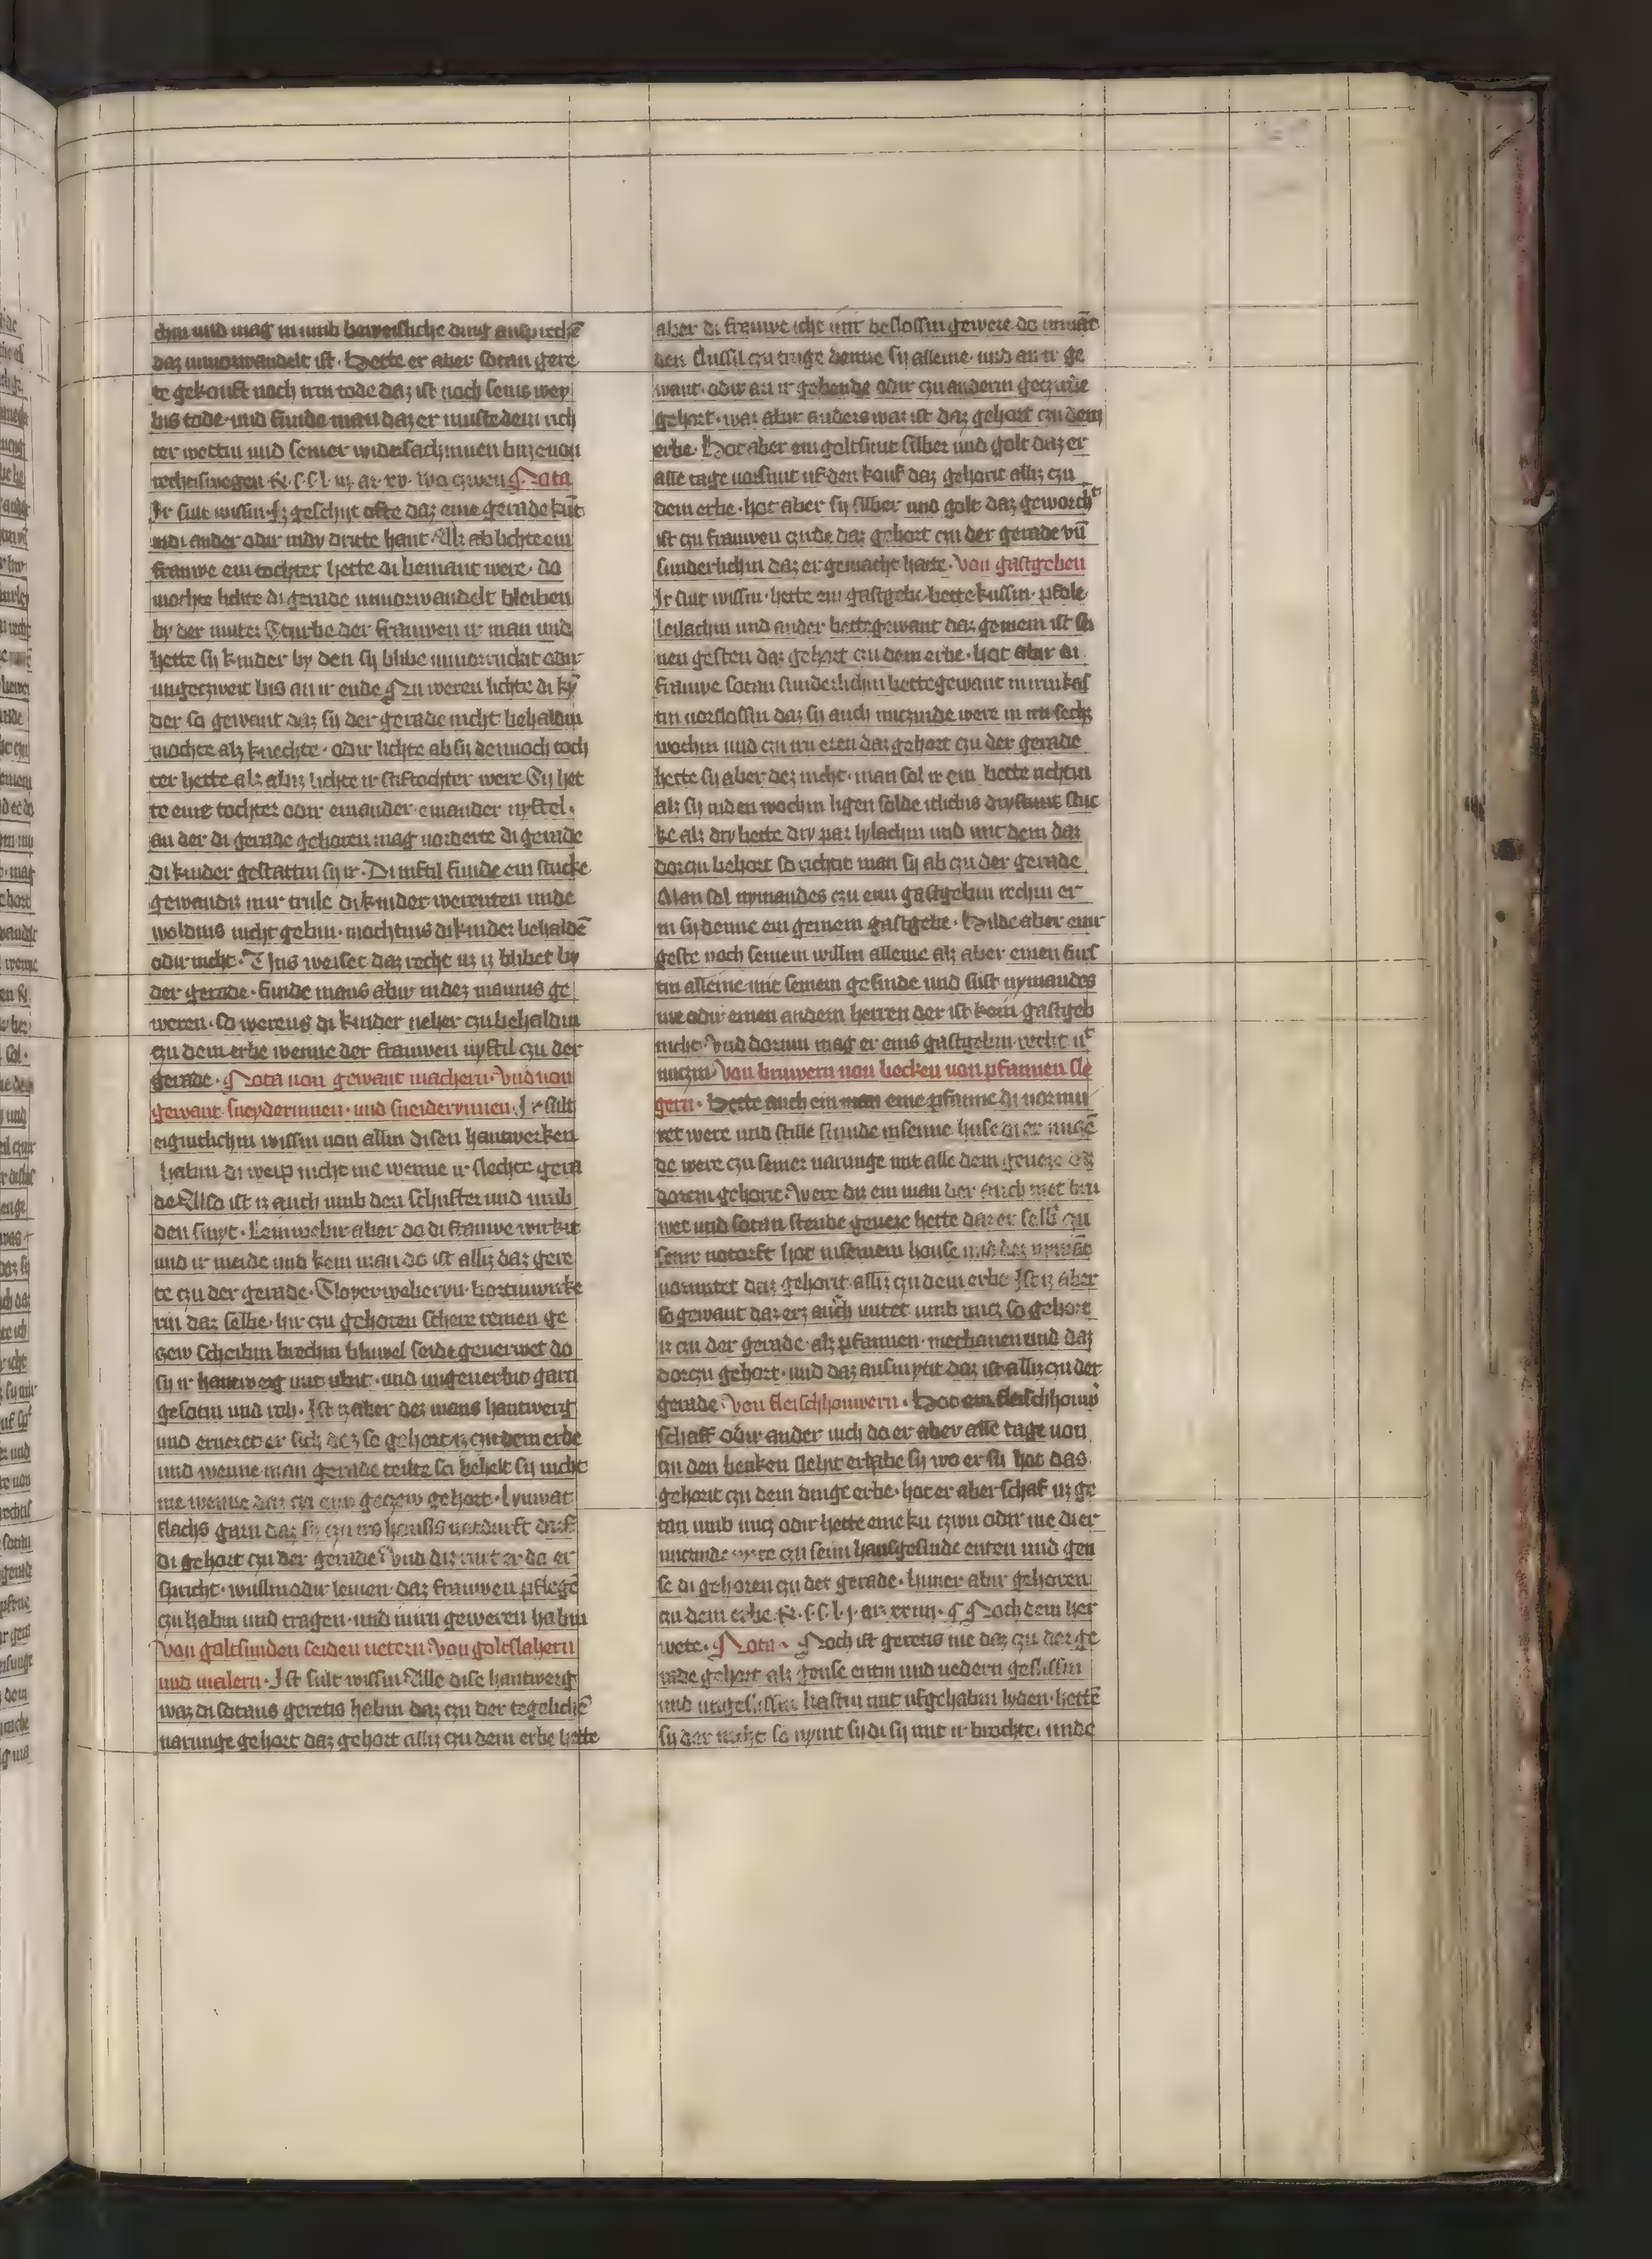 chin und mag in umb beweisliche ding ansprechē
daz unvorwandelt ist · Hette er aber sotan gere
te gekouft noch irm tode daz ist noch seins wey
bis tode · und funde man daz er muste dem rich
ter wettin und seiner widersachinnen buze von
rechtiswegen
Ir sult wissin · iz geschyt ofte daz eine gerade kūt
indi ander odir indy dritte hant · Alz ab lichte ein
frauwe ein tochter hette di bemant were · do
mochte lichte di gerade unvorwandelt bleiben
by der muter Sturbe der frauwen ir man und
hette sy kinder by den sy blibe unvorruckit odir
ungeczweit bis an ir ende zu weren lichte di ky
der so gewant daz sy der gerade nicht behaldin
mochte alz knechte · odir lichte ab sy dennoch toch
ter hette alz abiz lichte ir stiftochter were Sy het
te eine tochter odir einander einander nyftel ·
an der di gerade gehoren mag vorderte di gerade
di kinder gestattin sy ir · Di niftil funde ein stucke
gewandis mir teile di kinder werenten unde
woldins nicht gebin · mochtins di kinder behaldē
odir nicht · Dis weiset daz recht uz iz blibet by
der gerade · funde mans abir in dez mannes ge
weren · so werens di kinder neher czu behaldin
czu dem erbe wenne der frauwen nyftil czu der
gerade · Nota von gewant machern · Und von
gewant sneyderinnen · und sneiderynnen · Ir sult
eigintlichin wissin von allin disen hantwerken
habin di weip nicht me wenne ir slechte gera
de Also ist iz auch umb den schuster und umb
den smyt · Leinwebir aber do di frauwe wirkit
und ir meide und kein man do ist alliz daz gere
te czu der gerade · Sloyerweberyn · bortinwirke
rin daz selbe · hir czu gehoren schere remen ge
czew scheibin brechin bluwel seide geverwet do
sy ir hantwerg mit ubit · und ungeverbit garn
gesotin und roh · Ist iz aber dez mans hantwerg
und erneret er sich dez so gehort iz czu dem erbe
und wenne man gerade teilte so behelt sy nicht
me wenne daz czu eim geczew gehort · lynwat
flachs garn daz sy czu irs housis notdurft darf
di gehort czu der gerade
spricht · wullin odir leinen · daz frauwen pflegē
czu habin und tragen · und in irn geweren habin
Von goltsmiden seiden netern Von goltslahern
und malern · Ist sult wissin Alle dise hantwerg
waz di sotans geretis habin daz czu der tegelichē
narunge gehort daz gehort alliz czu dem erbe hette
aber di frauwe icht mit beslossin gewere do nimāt
den slussil czu truge denne sy alleine · und an ir ge
want · odir an ir gebende odir czu anderm geczirde
gehort · waz abir anders waz ist daz gehort czu dem
erbe · Hot aber ein goltsmit silber und golt daz er
alle tage vorsmit uf den kouf daz gehorit alliz czu
dem erbe · hot aber sy silber und golt daz geworcht
ist czu frauwen czirde daz gehort czu der gerade vn̄
sunderlichin daz er gemacht hatte · Von gastgeben
Ir sult wissin · hette ein gastgebe bette kussin · pfole
leilachin und ander bettegewant daz gemein ist sei
nen gesten daz gehort czu dem erbe · hot abir di
frauwe sotan sunderlichin bettegewant in irm kas
tin vorslossin daz sy auch nuczinde were in irn sechs
wochin und czu irn eren daz gehort czu der gerade
hette sy aber dez nicht · man sol ir ein bette richtin
alz sy in den wochin ligen solde itlichis drystunt stuc
ke alz dry bette dry par lylachin und mit dem daz
dorczu behort so richtit man sy ab czu der gerade
Man sol nymandes czu eim gastgebin rechin er
in sy denne ein gemein gastgebe · Hilde aber eine
geste noch seinem willin alleine alz aber einen furs
tin alleine mit seinem gesinde und sust nymandes
me odir einen andern herren der ist kein gastgeb
nicht · Und dorum mag er eins gastgebin recht nit
nuczin Von bruwern von becken von pfannen sle
gern · Hette auch ein man eine pfanne di vormi
tet were und stille stunde in seime huse di er nucē
de were czu seiner narunge mit alle dem gevese daz
dorczu gehorit · Were du ein man der auch met bru
wet und sotan steube gevese hette daz er selb czu
seinr notorft hot in seinem house und dez nymāde
vormitet daz gehorit alliz czu dem erbe Ist iz aber
so gewant daz erz auch mitet umb nucz so gehort
iz czu der gerade · alz pfannen · methanen und daz
dorczu gehort · und daz ausmytit daz ist alliz czu der
gerade · Von fleischhouwern · Hot ein fleischhouwer
schaff odir ander vich do er aber alle tage von
czu den benken sleht er habe sy wo er sy hot das
gehorit czu dem dinge erbe · hot er aber schaf uz ge
tan umb nucz odir hette eine ku czwu odir me di er
nuczinde were czu seim hausgesinde enten und gen
se di gehoren czu der gerade · huner abir gehoren
czu dem erbe
wete · Nota · Noch ist geretis me daz czu der ge
rade gehort alz gense entin und vedern geslissin
und ungeslissin kastin mit ufgehabin lyden · hette
sy der nicht so nymt sy di sy mit ir brochte · unde